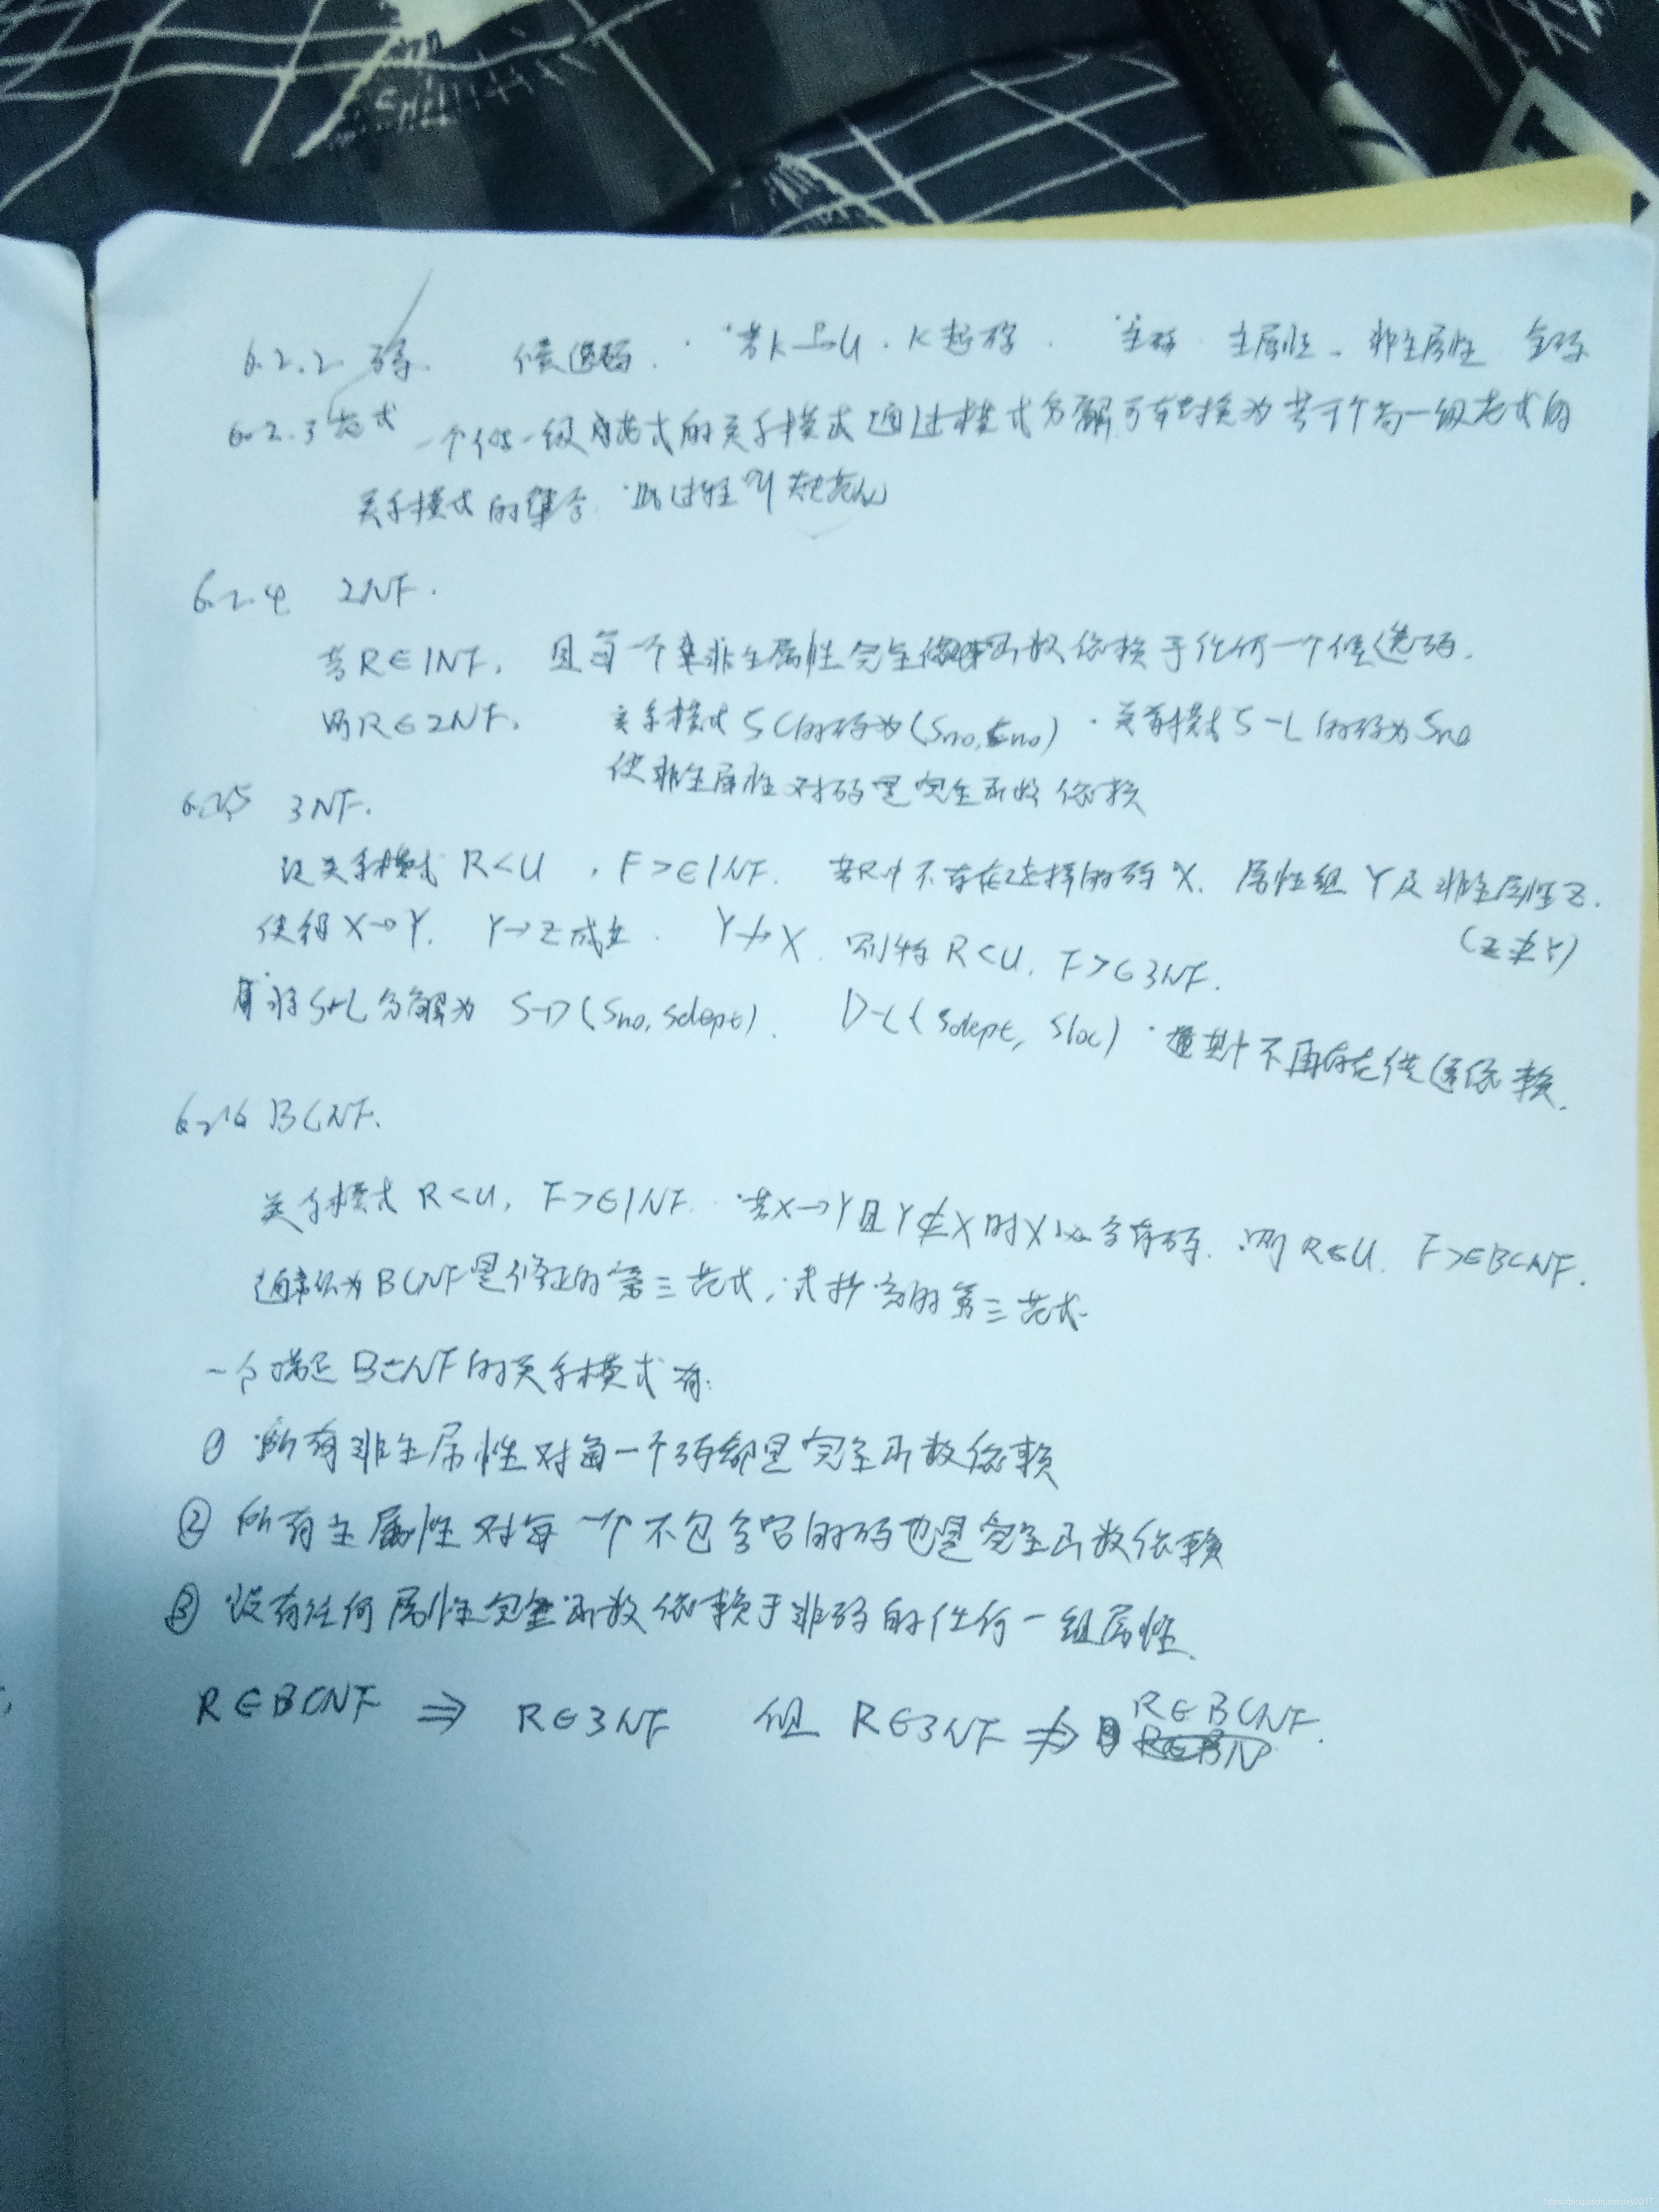 6.2.2 码. 候选码. 若K→U. K超码. 主码 主属性. 非主属性 全码
6.2.3 范式 一个低一级范式的关系模式通过模式分解可转换为若干个高一级范式的
关系模式的集合. 此过程叫规范化
6.2.4 2NF.
若R∈1NF, 且每一个非主属性完全函数依赖于任何一个候选码.
则R∈2NF. 关系模式SC的码为(Sno, Cno). 关系模式S-L的码为Sno
使非主属性对码是完全函数依赖
6.2.5 3NF.
设关系模式 R<U, F>∈1NF. 若R中不存在这样的码X. 属性组Y及非主属性Z.
(Z⊄Y)
使得X→Y. Y→Z成立. Y↛X. 则称R<U, F>∈3NF.
将S-L分解为 S-D(Sno, Sdept). D-L(Sdept, Sloc). 其中不再存在传递依赖.
6.2.6 BCNF.
关系模式R<U, F>∈1NF. 若X→Y且Y⊄X时X必含有码. 则R<U, F>∈BCNF.
通常认为BCNF是修正的第三范式, 或扩充的第三范式.
一个满足BCNF的关系模式有:
① 所有非主属性对每一个码都是完全函数依赖
② 所有主属性对每一个不包含它的码也是完全函数依赖
③ 没有任何属性完全函数依赖于非码的任何一组属性.
R∈BCNF ⇒ R∈3NF 但 R∈3NF ⇏ R∈BCNF.
https://blog.csdn.net/dxy2017